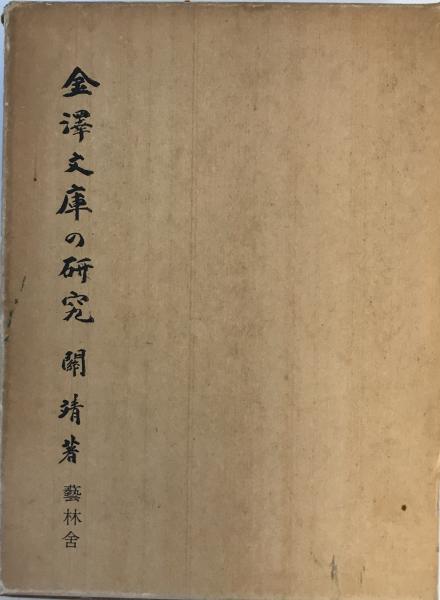 金澤文庫の研究 關靖著 藝林舎